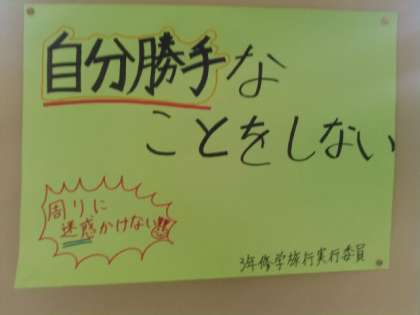 自分勝手な
ことをしない
周りに
迷惑かけない!!
3年修学旅行実行委員